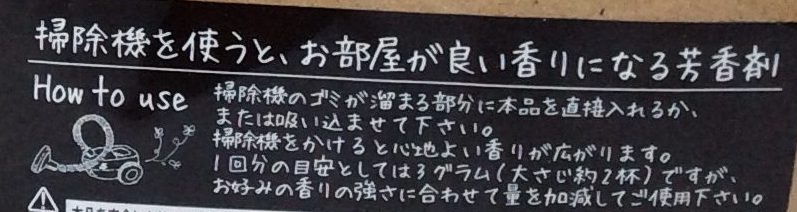 掃除機を使うと、お部屋が良い香りになる芳香剤
How to use
掃除機のゴミが溜まる部分に本品を直接入れるか、
または吸い込ませて下さい。
掃除機をかけると心地よい香りが広がります。
1回分の目安としては3グラム(大さじ約2杯)ですが、
お好みの香りの強さに合わせて量を加減してご使用下さい。